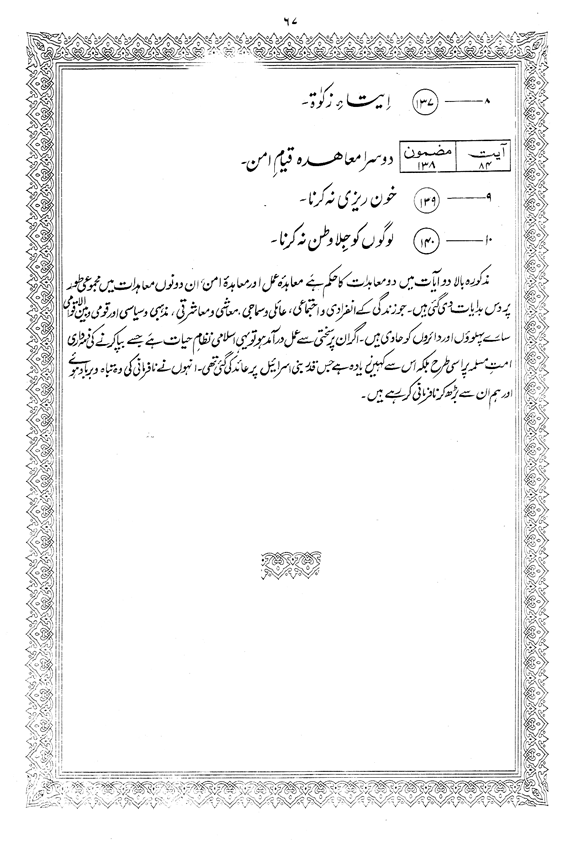 ۶۷
۸ —— (۱۳۷) اِیتاءِ زکوٰۃ۔
آیت ۸۴ مضمون ۱۳۸ دوسرا معاھدہ قیامِ امن۔
۹ —— (۱۳۹) خون ریزی نہ کرنا۔
۱۰ —— (۱۴۰) لوگوں کو جلا وطن نہ کرنا۔
مذکورہ بالا دو آیات میں دو معاہدات کا حکم ہے معاہدۂ عمل اور معاہدۂ امن ان دونوں معاہدات میں مجموعی طور
پر دس ہدایات دی گئی ہیں۔ جو زندگی کے انفرادی و اجتماعی، عائلی و سماجی، معاشی و معاشرتی، مذہبی و سیاسی اور قومی و بین الاقوامی
سارے پہلوؤں اور دائروں کو حاوی ہیں۔ اگر ان پر سختی سے عمل درآمد ہو تو یہی اسلامی نظامِ حیات ہے جسے بپا کرنے کی ذمہ داری
امتِ مسلمہ پر اسی طرح بلکہ اس سے کہیں زیادہ ہے جس قدر بنی اسرائیل پر عائد کی گئی تھی۔ انہوں نے نافرمانی کی وہ تباہ و برباد ہوئے
اور ہم ان سے بڑھ کر نافرمانی کر رہے ہیں۔